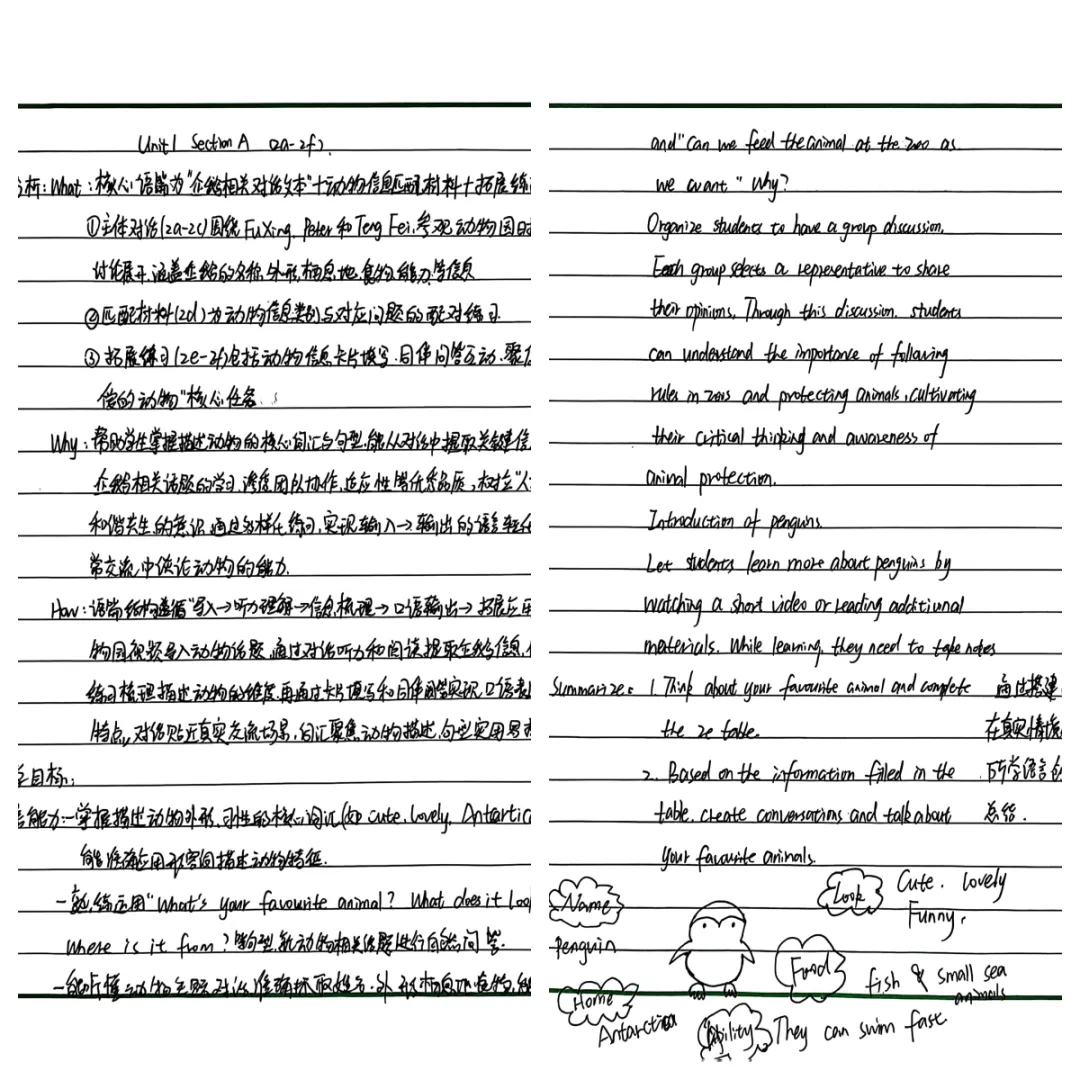 Unit1 Section A (2a-2f).
析: What: 核心语篇为"企鹅相关对话文本"+动物信息匹配材料+拓展练
①主体对话(2a-2c)围绕Fu Xing, Peter 和 Teng Fei, 参观动物园时
讨论展开,涵盖企鹅的名称、外形、栖息地、食物、能力等信息
②匹配材料(2d)为动物信息类别与对应问题的配对练习
③拓展练习(2e-2f)包括动物信息卡片填写、同伴问答互动,聚
的动物"核心任务.
Why: 帮助学生掌握描述动物的核心词汇与句型,能从对话中提取关键信
企鹅相关话题的学习,渗透团队协作、适应性等优秀品质,树立"人
和谐共生的意识,通过多样化练习,实现输入→输出的语言转化
常交流中谈论动物的能力.
How: 语篇结构遵循"导入→听力理解→信息梳理→口语输出→拓展应用
物园视频导入动物话题,通过对话听力和阅读提取企鹅信息,
练习梳理描述动物的维度,再通过卡片填写和同伴问答实现口语表
特点,对话贴近真实交流场景,词汇聚焦动物描述,句型实用易
目标:
能力:一掌握描述动物外形、习性的核心词汇(如 cute, lovely, Antarctic
能准确运用形容词描述动物特征.
一熟练运用"What's your favourite animal? What does it loo
Where is it from? 等句型,就动物相关话题进行自然问答.
一能听懂动物主题对话,准确抓取姓名、外形、栖息地、食物、能
and "Can we feed the animal at the zoo as
we want" Why?
Organize students to have a group discussion.
Each group selects a representative to share
their opinions. Through this discussion, students
can understand the importance of following
rules in zoos and protecting animals, cultivating
their critical thinking and awareness of
animal protection.
Introduction of penguins.
Let students learn more about penguins by
watching a short video or reading additional
materials. While learning, they need to take notes
Summarize: 1. Think about your favourite animal and complete 通过搭建
the 2e table. 在真实情境
2. Based on the information filled in the 所学语言的
table, create conversations and talk about 总结.
your favourite animals.
Name
Penguin
Look
Cute. lovely
Funny.
Food
fish & small sea
animals
Home
Antarctica
Ability
They can swim fast.